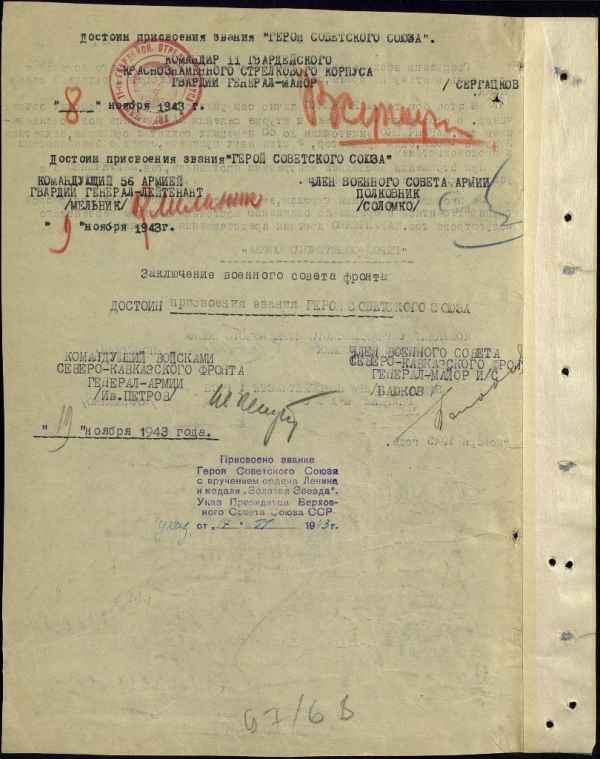 Достоин присвоения звания "ГЕРОЯ СОВЕТСКОГО СОЮЗА".
КОМАНДИР 11 ГВАРДЕЙСКОГО
КРАСНОЗНАМЕННОГО СТРЕЛКОВОГО КОРПУСА
ГВАРДИИ ГЕНЕРАЛ-МАЙОР / СЕРГАЦКОВ
"8" ноября 1943 г.
Достоин присвоения звания "ГЕРОЙ СОВЕТСКОГО СОЮЗА"
КОМАНДУЮЩИЙ 56 АРМИЕЙ ЧЛЕН ВОЕННОГО СОВЕТА АРМИИ
ГВАРДИИ ГЕНЕРАЛ-ЛЕЙТЕНАНТ ПОЛКОВНИК
/МЕЛЬНИК/ /СОЛОМКО/
"9" ноября 1943г.
Заключение военного совета фронта
ДОСТОИН присвоения звания ГЕРОЯ СОВЕТСКОГО СОЮЗА
КОМАНДУЮЩИЙ ВОЙСКАМИ ЧЛЕН ВОЕННОГО СОВЕТА
СЕВЕРО-КАВКАЗСКОГО ФРОНТА СЕВЕРО-КАВКАЗСКОГО
ГЕНЕРАЛ-АРМИИ ГЕНЕРАЛ-МАЙОР И/С
/Ив.ПЕТРОВ/ /БАЮКОВ/
" " ноября 1943 года.
Присвоено звание
Героя Советского Союза
с вручением ордена Ленина
и медали „Золотая Звезда".
Указ Президиума Верхов-
ного Совета Союза ССР
от 1943г.